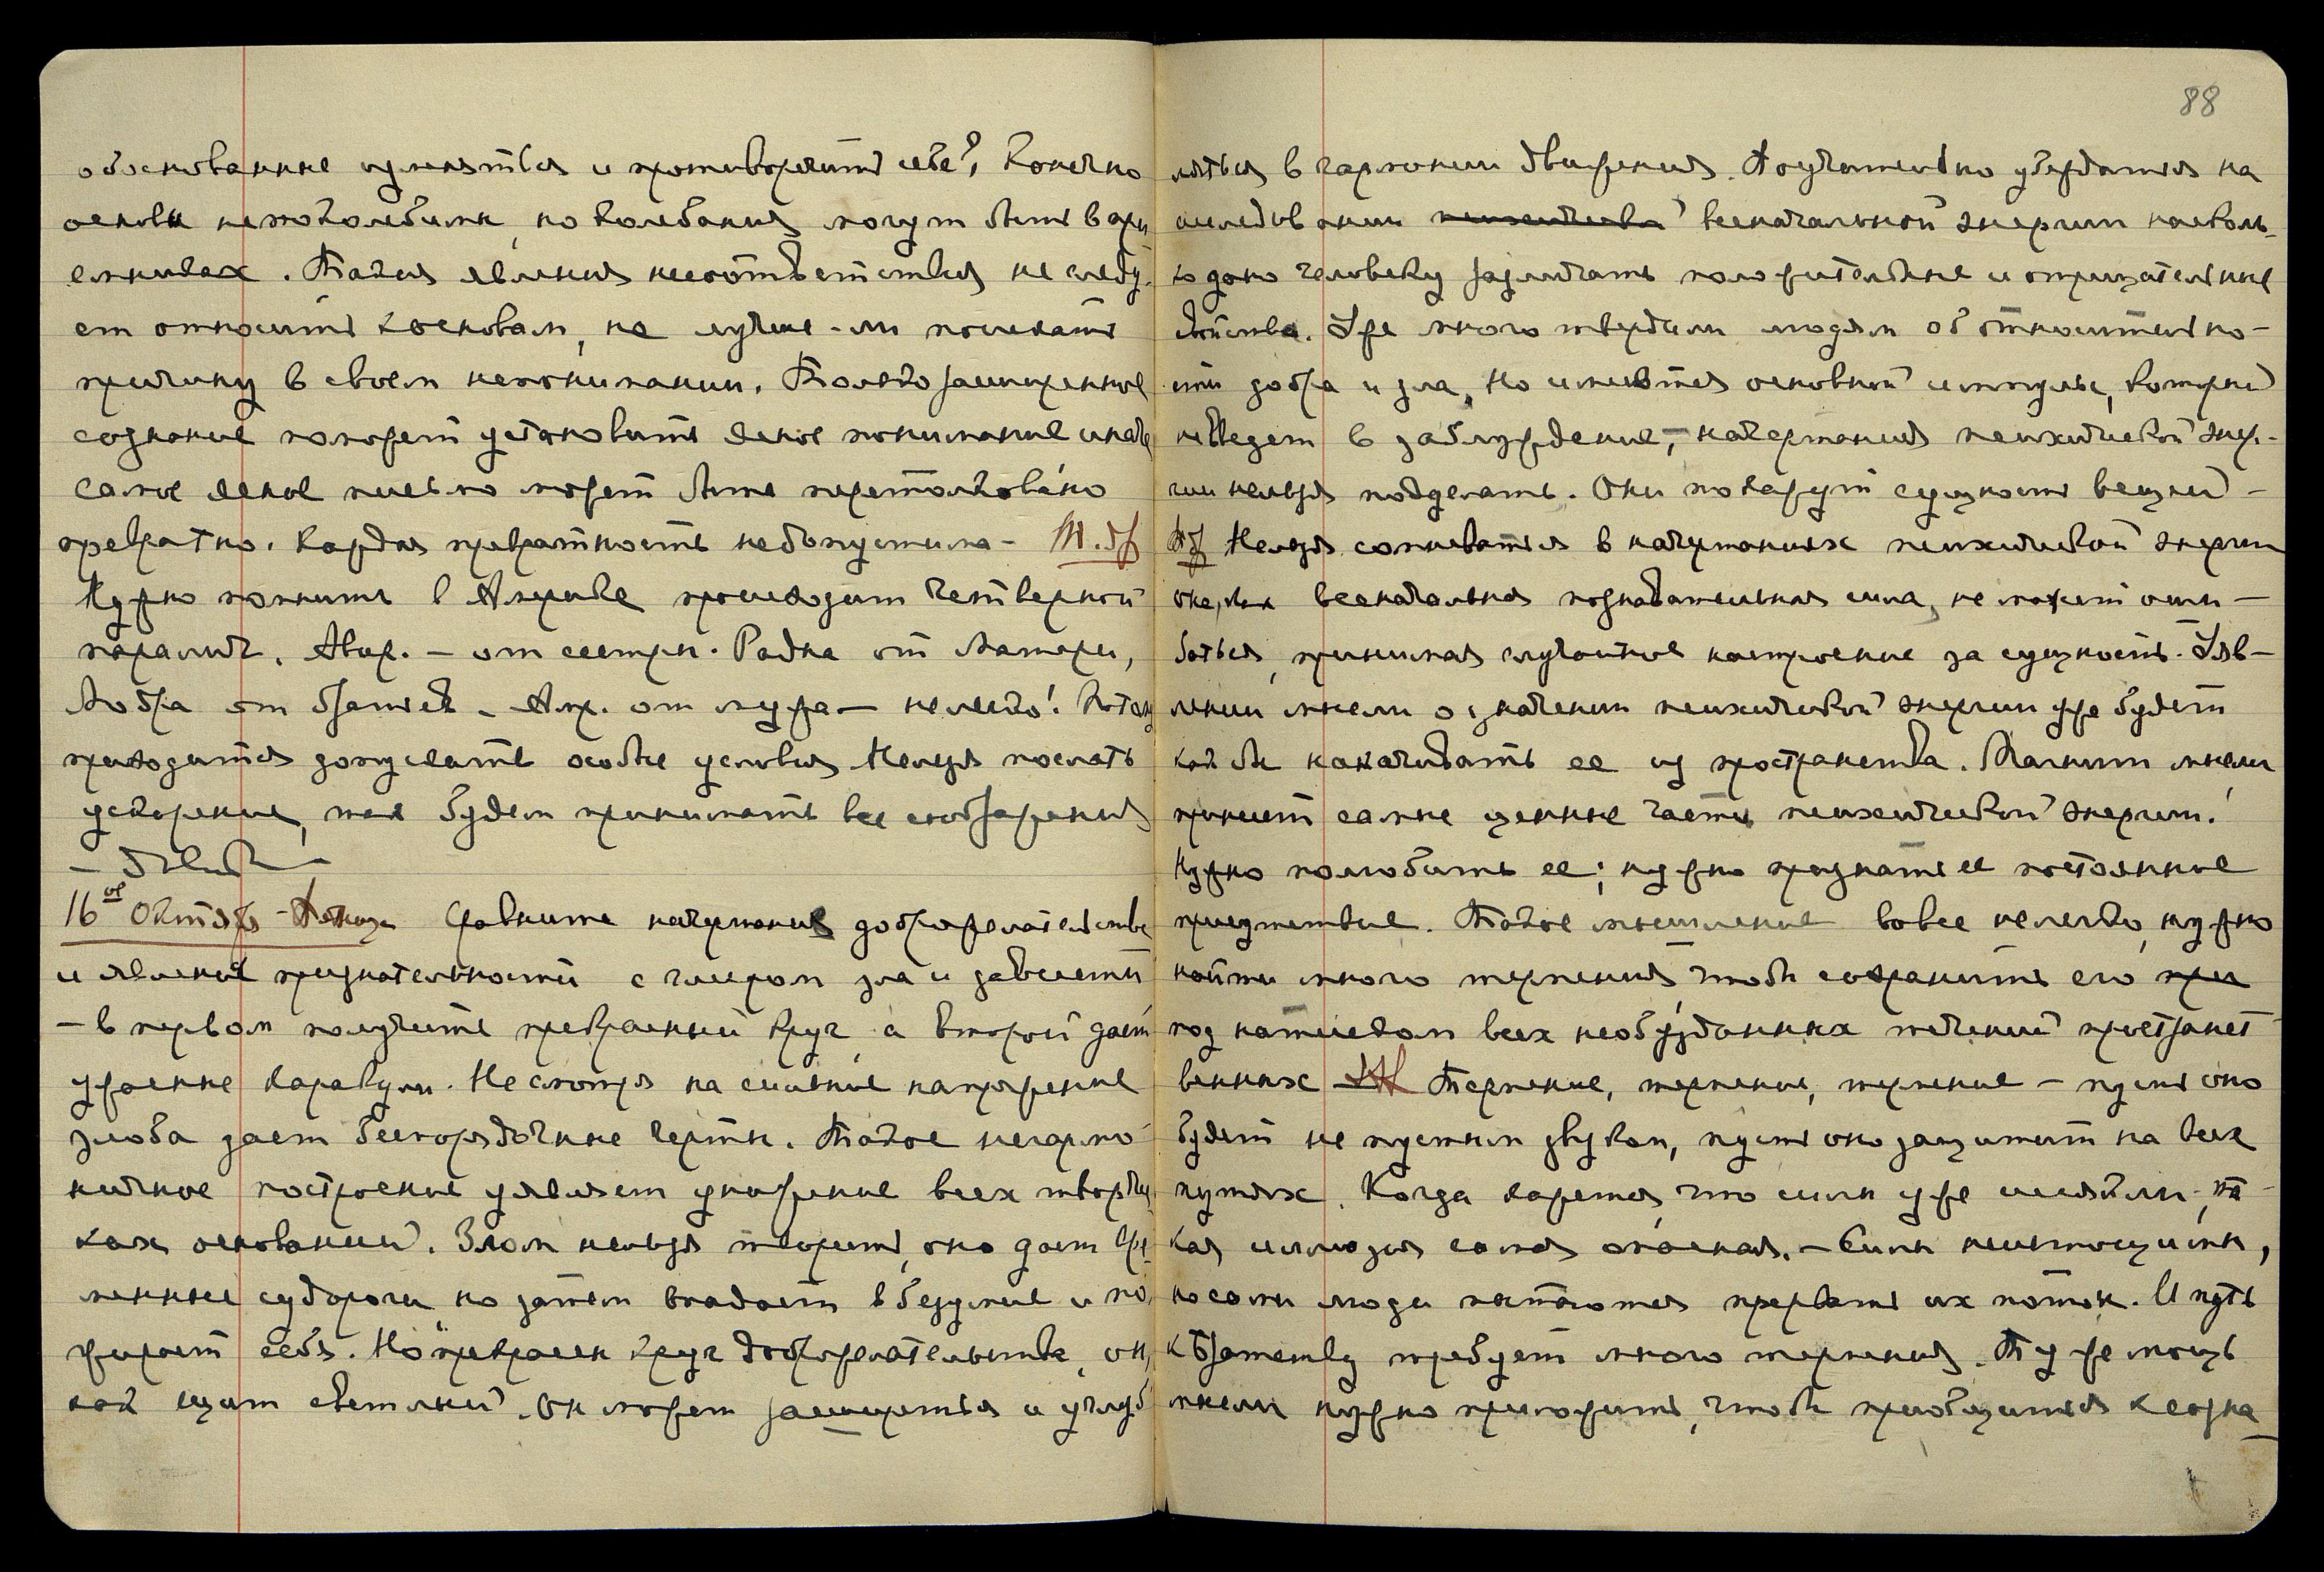 обоснованные изменяться и противоречить себе? Конечно
основы непоколебимы, но колебания могут быть в
Такия явления несоответствия не следу-
ет относить к основам, не лучше-ли поискать
причину в своем непонимании. Только расширенное
сознание поможет установить ясное понимание иначе
самое ясное письмо может быть перетолковано
превратно. Каждая превратность недопустима –
Нужно помнить в Америке происходит четверной
паралич. Авир. – от сестры. Радна от Матери,
Модра от братьев – Амр. от мужа – нелегко!
приходится допускать особые условия. Нельзя послать
ускорение, так будем принимать все соображения

16ое Октяб Сравните начертания доброжелательства
и явления признательности с гиером зла и зависти
– в первом получите прекрасный круг, а второй дает
ужасные каракули. Несмотря на сильное напряжение
злоба дает беспорядочные черты. Такое негармо-
ничное построение являет унижение всех творчес-
ких оснований. Злом нельзя творить, оно дает вре-
менные судороги, но затем впадает в безумие и по-
жирает себя. Но прекрасен круг доброжелательства, он,
как щит светлый. Он может расширяться и углуб-
88
ляться в гармонии движения. Поучительно убедиться на
исследовании всеначальной энергии насколь-
ко дано человеку различать положительные и отрицательные
свойства. Уже много твердили людям об относительно-
сти добра и зла, но имеется основной импульс, который
не введет в заблуждение, – начертания психической энер-
гии нельзя подделать. Они покажут сущность вещей –
Нельзя сомневаться в начертаниях психической энергии
она, как всеначальная познавательная сила, не может оши-
баться, принимая случайное настроение за сущность. Уяв-
лении мысли о значении психической энергии уже будет
как бы накачивать ее из пространства. Магнит мысли
приносит самые ценные части психической энергии!
Нужно полюбить ее; нужно признать ее постоянное
присутствие. Такое мышление вовсе нелегко, нужно
найти много терпения, чтобы сохранить его при
под натиском всех необузданных течений пространст-
венных Терпение, терпение, терпение – пусть оно
будет не пустым звуком, пусть оно защитит на всех
путях. Когда кажется, что силы уже иссякли, та-
кая иллюзия самая опасная. – Силы неистощимы,
но сами люди пытаются прервать их поток. И путь
к Братству требует много терпения. Ту же мощь
мысли нужно приложить, чтобы приобщиться к созна